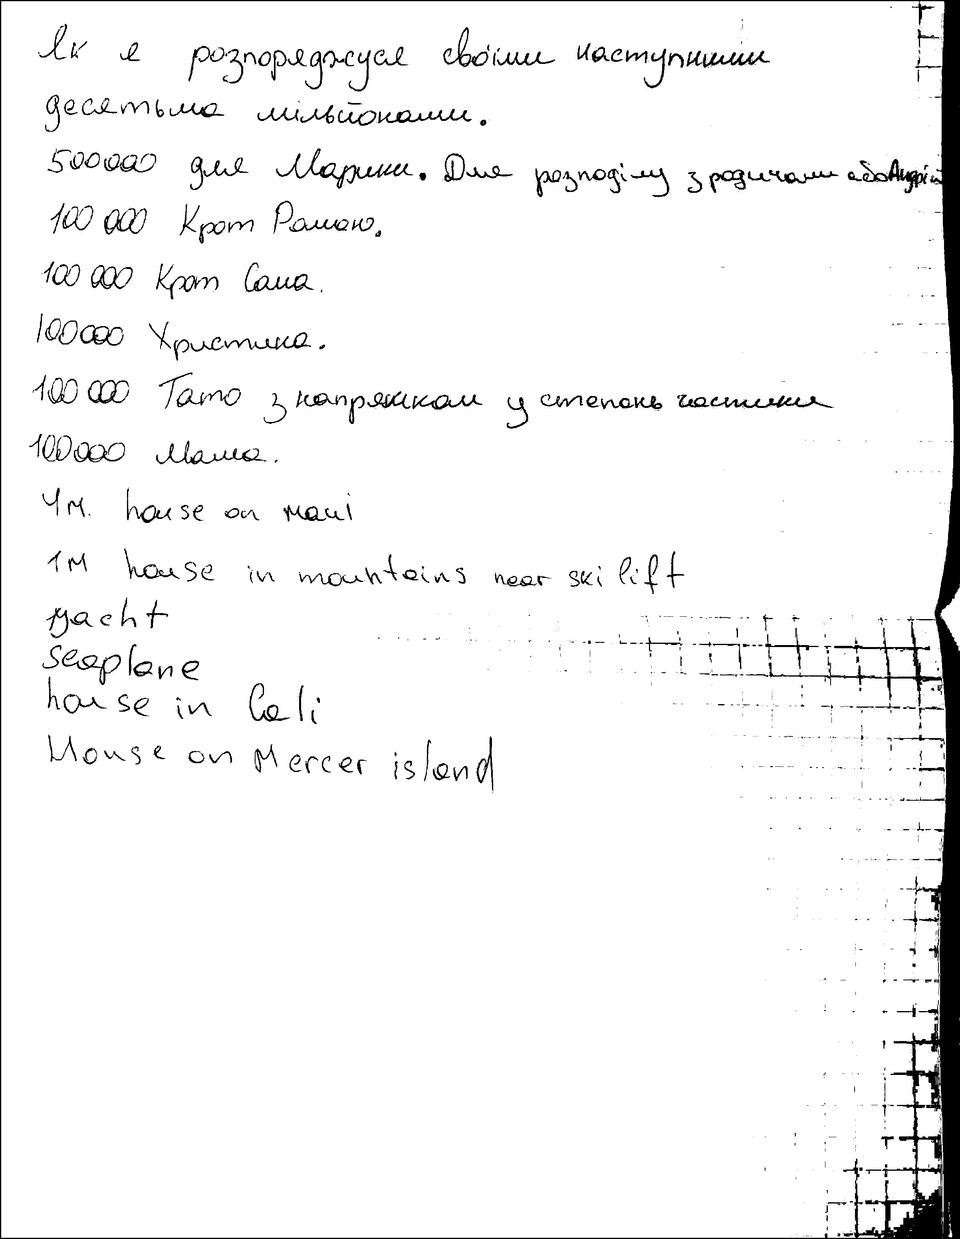 Як я розпоряджуся своїми наступними
десятьма мільйонами.
500000 для Марики. Для розподілу з родичами або Андрій
100 000 Крот Роман.
100 000 Крот Саша.
100000 Христинка.
100 000 Тато з напрямком у
100000 Мама.
4м. house on maui
1м house in mountains near ski lift
yacht
seaplane
house in Cali
House on Mercer island